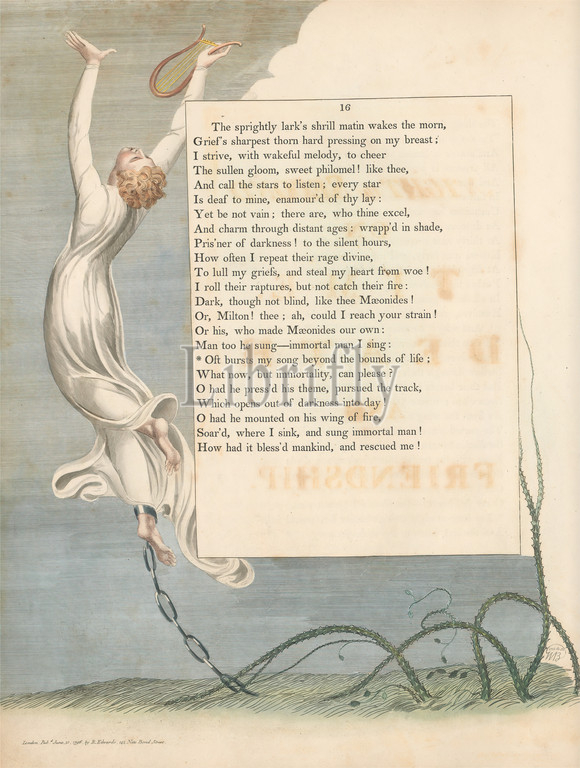 16
The sprightly lark's shrill matin wakes the morn,
Grief's sharpest thorn hard pressing on my breast;
I strive, with wakeful melody, to cheer
The sullen gloom, sweet philomel! like thee,
And call the stars to listen; every star
Is deaf to mine, enamour'd of thy lay:
Yet be not vain; there are, who thine excel,
And charm through distant ages: wrapp'd in shade,
Pris'ner of darkness! to the silent hours,
How often I repeat their rage divine,
To lull my griefs, and steal my heart from woe!
I roll their raptures, but not catch their fire:
Dark, though not blind, like thee Mæonides!
Or, Milton! thee; ah, could I reach your strain!
Or his, who made Mæonides our own:
Man too he sung—immortal man I sing:
* Oft bursts my song beyond the bounds of life;
What now, but immortality, can please?
O had he press'd his theme, pursued the track,
Which opens out of darkness into day!
O had he mounted on his wing of fire,
Soar'd, where I sink, and sung immortal man!
How had it bless'd mankind, and rescued me!
Librifly
FRIENDSHIP.
WB
London Pub. June 21, 1796, by R. Edwards, 142 New Bond Street